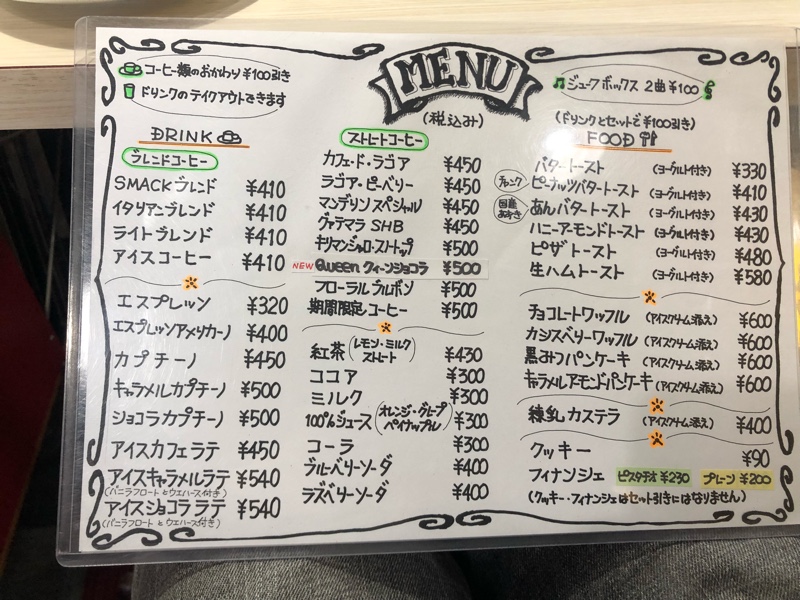 コーヒー類のおかわり¥100引き
ドリンクのテイクアウトできます
MENU
(税込み)
ジュークボックス 2曲¥100
DRINK
ブレンドコーヒー
SMACKブレンド ¥410
イタリアンブレンド ¥410
ライトブレンド ¥410
アイスコーヒー ¥410
エスプレッソ ¥320
エスプレッソアメリカーノ ¥400
カプチーノ ¥450
キャラメルカプチーノ ¥500
ショコラカプチーノ ¥500
アイスカフェラテ ¥450
アイスキャラメルラテ ¥540
(バニラフロートとウエハース付き)
アイスショコララテ ¥540
(バニラフロートとウエハース付き)
ストレートコーヒー
カフェ・ド・ラゴア ¥450
ラゴア・ピーベリー ¥450
マンデリンスペシャル ¥450
グァテマラSHB ¥450
キリマンジャロ・スノートップ ¥500
NEW Queen クィーンショコラ ¥500
フローラルブルボン ¥500
期間限定コーヒー ¥500
紅茶 (レモン・ミルク ストレート) ¥430
ココア ¥300
ミルク ¥300
100%ジュース (オレンジ・グレープ パイナップル) ¥300
コーラ ¥300
ブルーベリーソーダ ¥400
ラズベリーソーダ ¥400
(ドリンクとセットで¥100引き)
FOOD
バタートースト (ヨーグルト付き) ¥330
チャンク ピーナッツバタートースト (ヨーグルト付き) ¥410
国産あずき あんバタートースト (ヨーグルト付き) ¥430
ハニーアーモンドトースト (ヨーグルト付き) ¥430
ピザトースト (ヨーグルト付き) ¥480
生ハムトースト (ヨーグルト付き) ¥580
チョコレートワッフル (アイスクリーム添え) ¥600
カシスベリーワッフル (アイスクリーム添え) ¥600
黒みつパンケーキ (アイスクリーム添え) ¥600
キャラメルアーモンドパンケーキ (アイスクリーム添え) ¥600
練乳カステラ (アイスクリーム添え) ¥400
クッキー ¥90
フィナンシェ ピスタチオ ¥230 プレーン ¥200
(クッキー・フィナンシェはセット引きにはなりません)